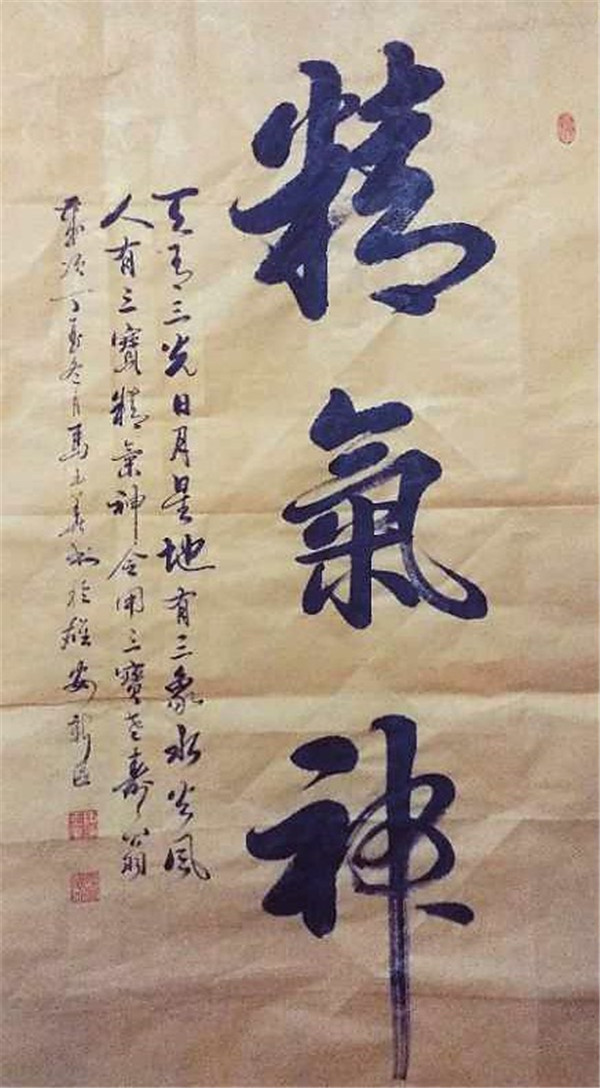 精氣神
天有三光日月星地有三象水火風
人有三寶精氣神合用三寶者壽翁
歲次丁酉冬月馬玉義書於雄安新區